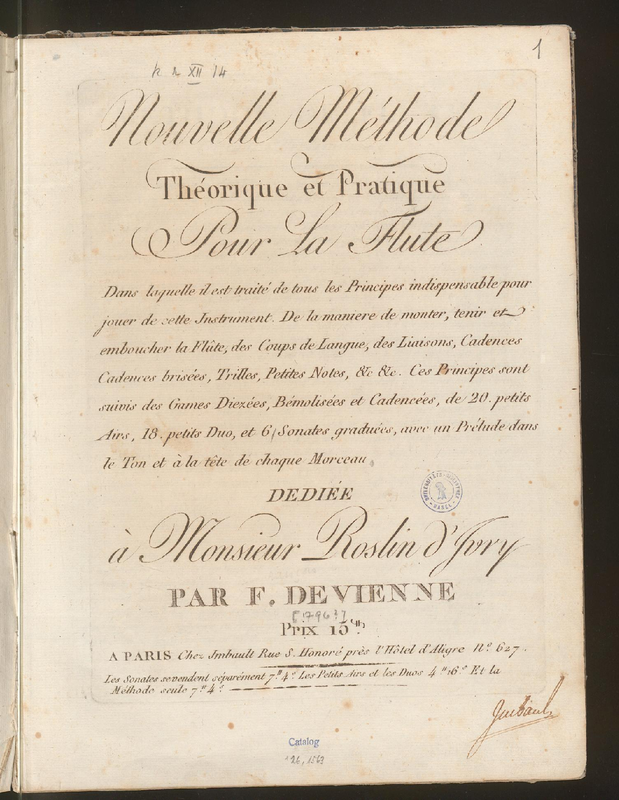 1
Nouvelle Méthode
Théorique et Pratique
Pour La Flute
Dans laquelle il est traité de tous les Principes indispensable pour
jouer de cette Instrument. De la maniere de monter, tenir et
emboucher la Flûte, des Coups de Langue, des Liaisons, Cadences
Cadences brisées, Trilles, Petites Notes, &c &c. Ces Principes sont
suivis des Games Diezées, Bémolisées et Cadencées, de 20. petits
Airs, 18. petits Duo, et 6 Sonates graduées, avec un Prélude dans
le Ton et à la tête de chaque Morceau.
DEDIÉE
à Monsieur Roslin d'Ivry
PAR F. DEVIENNE
Prix 15.tt
A PARIS Chez Imbault Rue S. Honoré près l'Hôtel d'Aligre N.o 627.
Les Sonates se vendent séparément 7.tt 4.s Les Petits Airs et les Duos 4.tt 16.s Et la
Méthode seule 7.tt 4.s
Imbault
Catalog